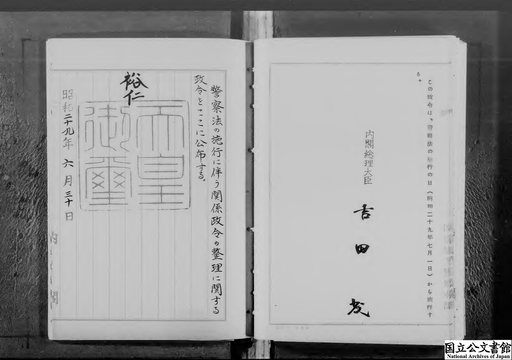 この政令は、警察法の施行の日(昭和二十九年七月一日)から施行す
る。
内閣総理大臣
吉田茂
警察法の施行に伴う関係政令の整理に関する
政令をここに公布する。
裕仁
天皇
御璽
昭和二十九年六月三十日
国立公文書館
National Archives of Japan